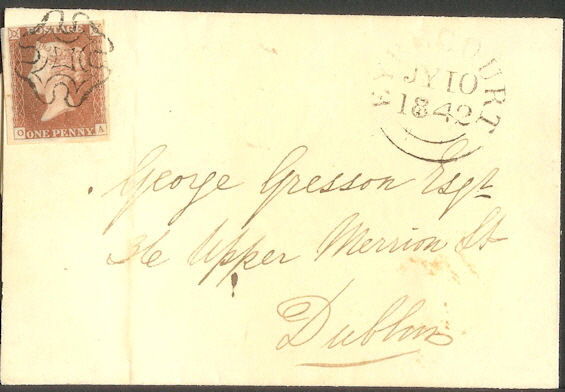 POSTAGE
ONE PENNY
O A
EYRECOURT
JY 10
1842
George Gresson Esqr
36 Upper Merrion St
Dublin